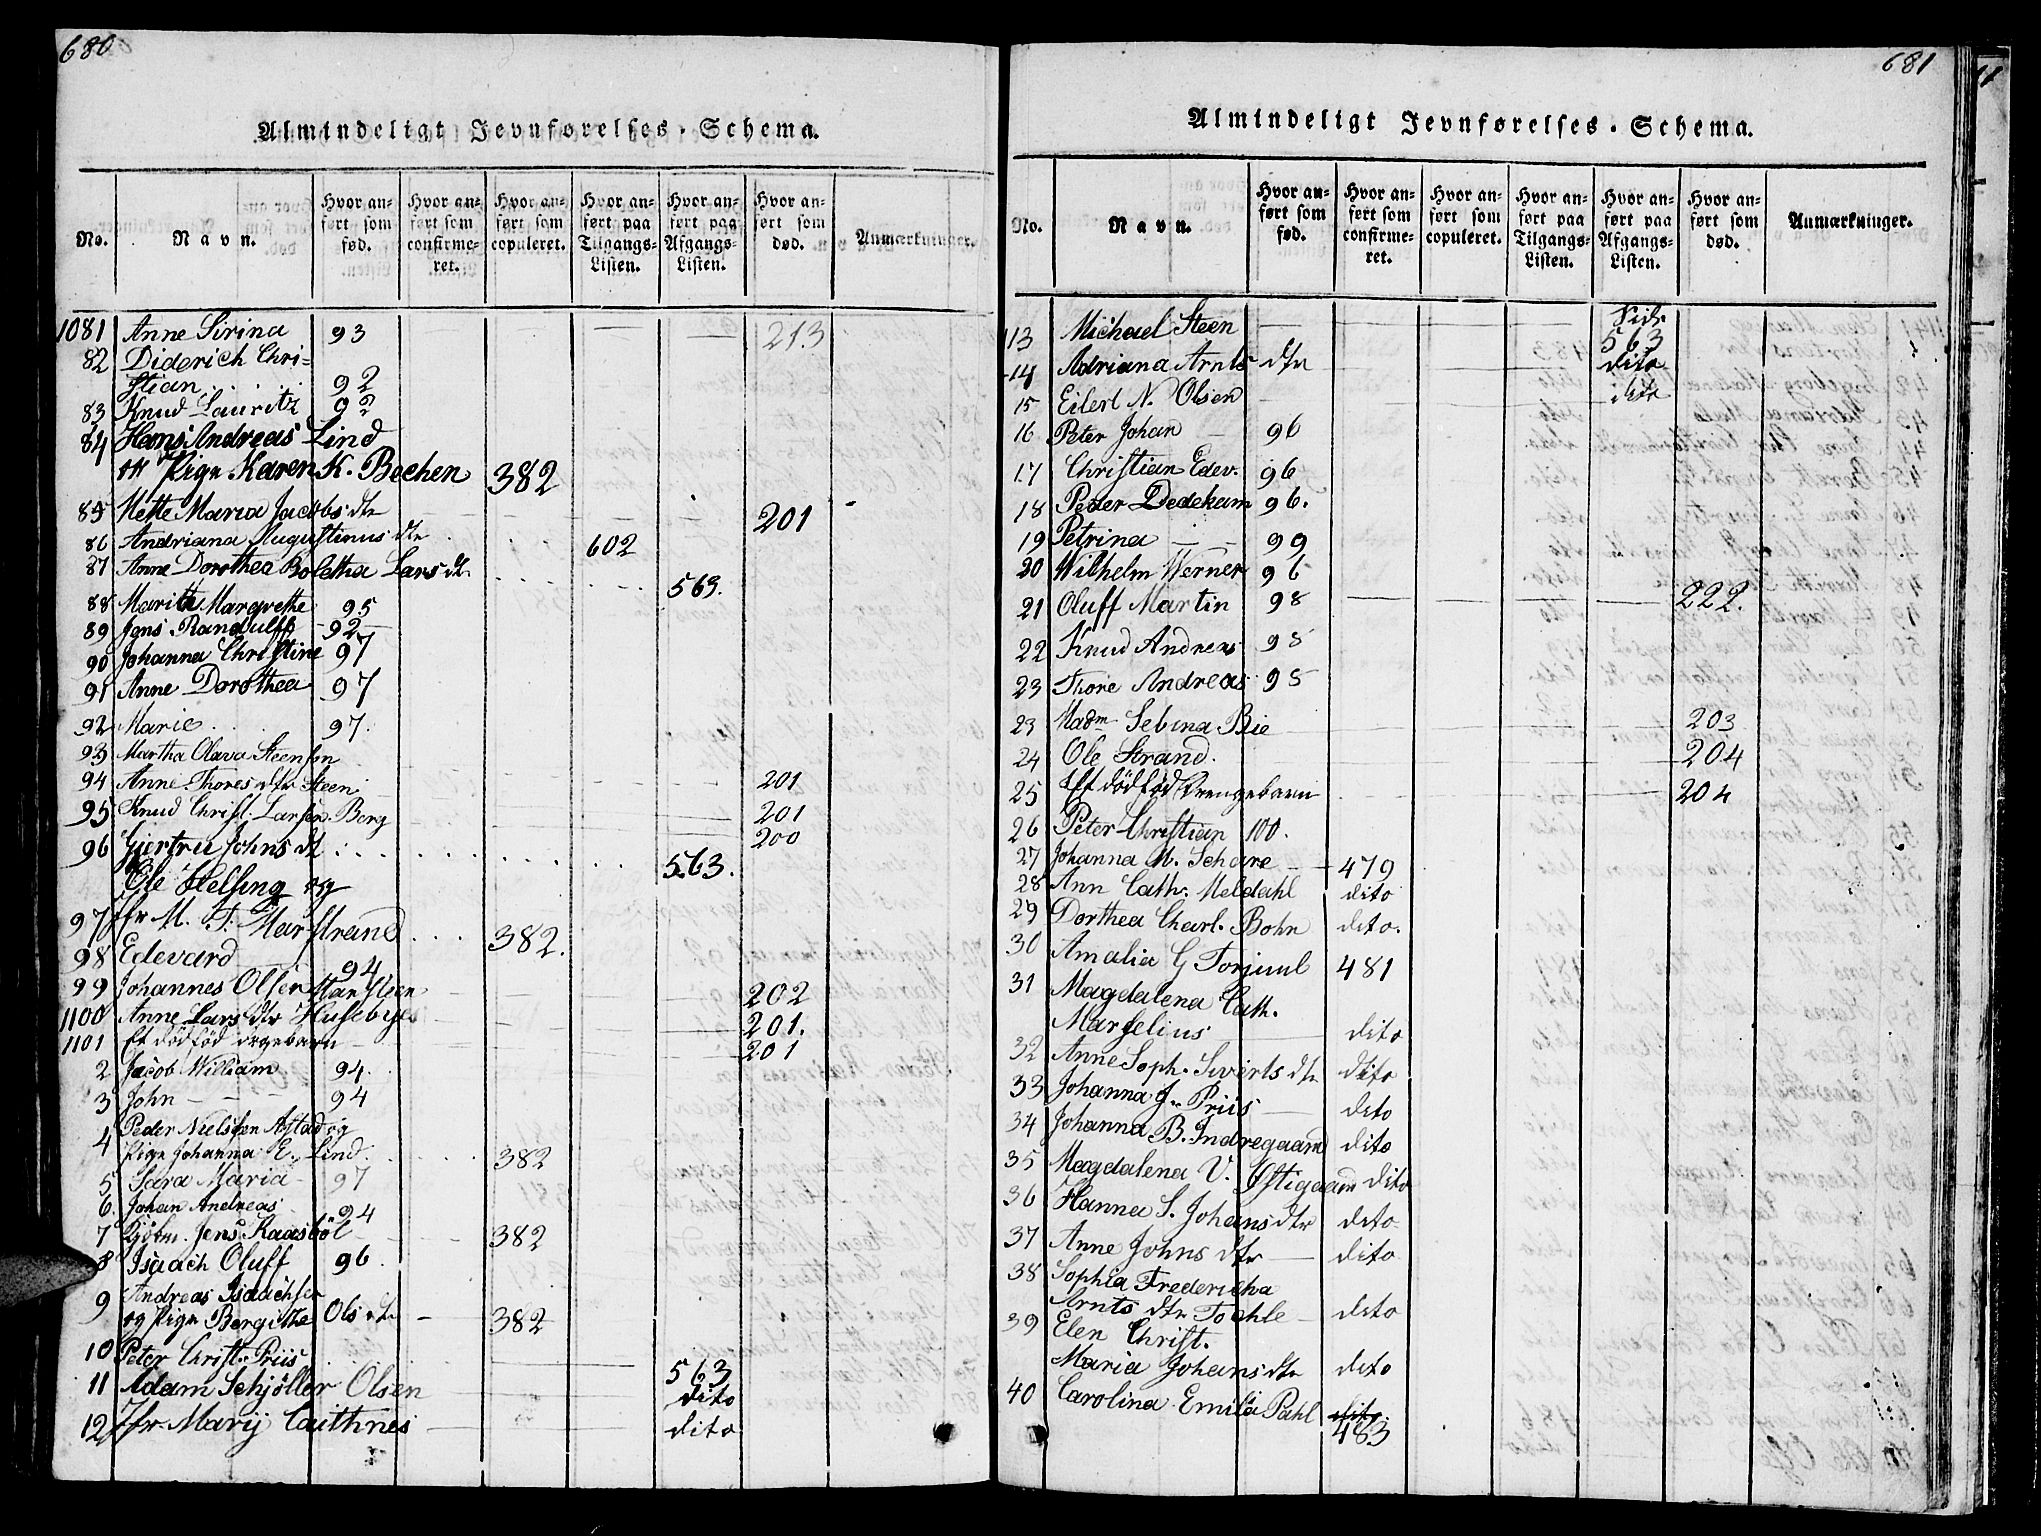 680
Almindeligt Jevnførelses-Schema.
No. Navn. Hvor anført som fød. Hvor anført som confirmeret. Hvor anført som copuleret. Hvor anført paa Tilgangs-Listen. Hvor anført paa Afgangs-Listen. Hvor anført som død. Anmærkninger.
1081 Anne Sirina 93 213
82 Diderich Chri-
stian 92
83 Knud Lauritz 92
84 Hans Andreas Lind
og Pige Karen K. Bechen 382
85 Mette Maria Jacobs dtr 201
86 Andriana Augustinus dtr 602
87 Anne Dorothea Boletha Lars dtr. 563.
88 Marith Margrethe 95
89 Jens Randulff 92
90 Johanna Christine 97
91 Anne Dorothea 97
92 Marie 97.
93 Martha Olava Steensen
94 Anne Thores dtr Steen 201
95 Knud Christ. Larsen Berg 201
200
96 Gjertru Johns dt 563.
Ole Helsing og
97 Jfr M. T. Marstrand 382.
98 Edevard 94
99 Johannes Olsen Marsteen 202
1100 Anne Lars dtr Husebye 201.
1101 Et dödfød Pigebarn 201
2 Jacob William 94.
3 John 94
4 Peder Nielsen Astad og
Pige Johanna E. Lind. 382
5 Sara Maria 97
6. Johan Andreas 94
7 Kjöbm. Jens Kaasböl 382
8 Isaach Oluff 96.
9 Andreas Isaachsen
og Pige Bergithe Ols dtr 382
10 Peter Christ. Priis 563
11 Adam Schjöller Olsen dito
12 Jfr. Marij Caithnes dito
681
Almindeligt Jevnførelses-Schema.
No. Navn. Hvor anført som fød. Hvor anført som confirmeret. Hvor anført som copuleret. Hvor anført paa Tilgangs-Listen. Hvor anført paa Afgangs-Listen. Hvor anført som død. Anmærkninger.
Side
113 Michael Steen 563
14 Adriana Arnts dtr dito
15 Eilert N. Olsen dito
16 Peter Johan 96
17 Christian Edev. 96
18 Peder Dedekam 96.
19 Petrina 99
20 Wilhelm Werner 96
21 Oluff Martin 98 222.
22 Knud Andreas 98
23 Thore Andreas 95
23 Madm Sebina Bie 203
24 Ole Strand. 204
25 Et dödfød Drengebarn 204
26 Peter Christian 100.
27 Johanna M. Schare 479
28 Ann Cath. Meldahl dito
29 Dorthea Charl. Bohn dito.
30 Amalia G Torjuul 481
31 Magdalena Cath.
Marselius dito
32 Anne Soph. Siverts dtr dito
33 Johanna J. Priis dito
34 Johanna B. Indregaard dito
35 Magdalena V. Östigaard dito
36 Hanna S. Johans dtr dito
37 Anne Johns dtr dito
38 Sophia Fredericha
Arnts dtr Tochle dito
39 Elen Christ.
Maria Johans dtr dito
40 Carolina Emilia Pahl dito.
483